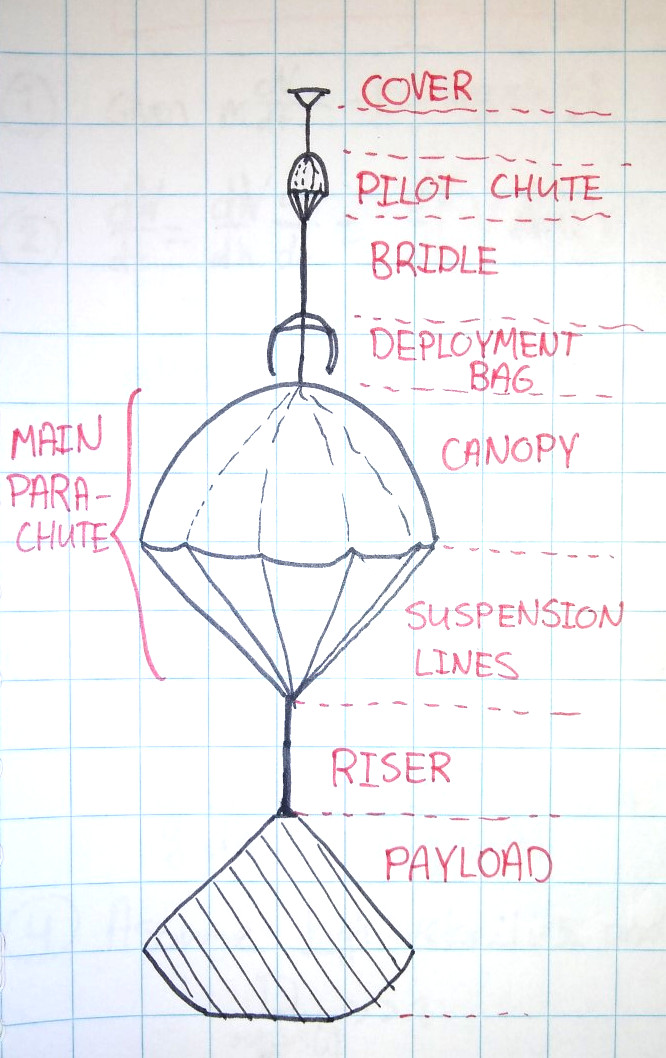 COVER
PILOT CHUTE
BRIDLE
DEPLOYMENT
BAG
MAIN
PARA-
CHUTE
CANOPY
SUSPENSION
LINES
RISER
PAYLOAD